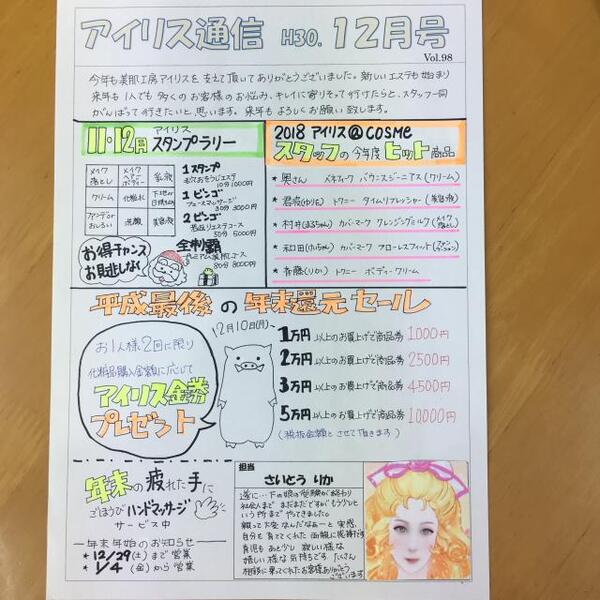 アイリス通信 H30. 12月号
Vol.98
今年も美肌工房アイリスを支えて頂いてありがとうございました。新しいエステも始まり
来年も1人でも多くのお客様のお悩み、キレイに寄りそって行けたらと、スタッフ一同
がんばって行きたいと思います。来年もよろしくお願い致します。
11・12月 アイリス スタンプラリー
メイク落とし メイクヘアーボディー 乳液
クリーム 化粧水 下地or日焼け止め
ファンデorおしろい 洗顔 美容液
1スタンプ
毛穴おそうじエステ
10分 1000円
1ビンゴ
フェースマッサージ
30分 3000円
2ビンゴ
50分 5000円
全制覇
80分 8000円
お得チャンス
お見逃しなく
2018 アイリス@COSME
スタッフの今年度ヒット商品
★ 奥さん (クリーム)
★ トワニー タイムリフレッシャー (美容液)
★ 村井(まるちゃん) カバーマーク クレンジングミルク (メイク落とし)
★ カバーマーク フローレスフィット
★ 斉藤(りか) トワニー ボディークリーム
平成最後の年末還元セール
お1人様2回に限り
化粧品購入金額に応じて
アイリス金券
プレゼント
12月10日(月)〜
1万円以上のお買上げで商品券 1000円
2万円以上のお買上げで商品券 2500円
3万円以上のお買上げで商品券 4500円
5万円以上のお買上げで商品券 10000円
(税抜金額とさせて頂きます)
年末の疲れた手に
ごほうびハンドマッサージ
サービス中
年末年始のお知らせ
★ 12/29(土)まで営業
★ 1/4(金)から営業
担当
さいとう りか
遂に…下の娘の受験が終わり
社会人まで まだまだですがもう少しと
いう所までやってきました。
親って大変なんだなあーと実感。
自分を育ててくれた両親に感謝だす
育児もあと少し 寂しい様な
嬉しい様な気持ちです たくさん
相談に乗ってくれたお客様ありがとう
ございます